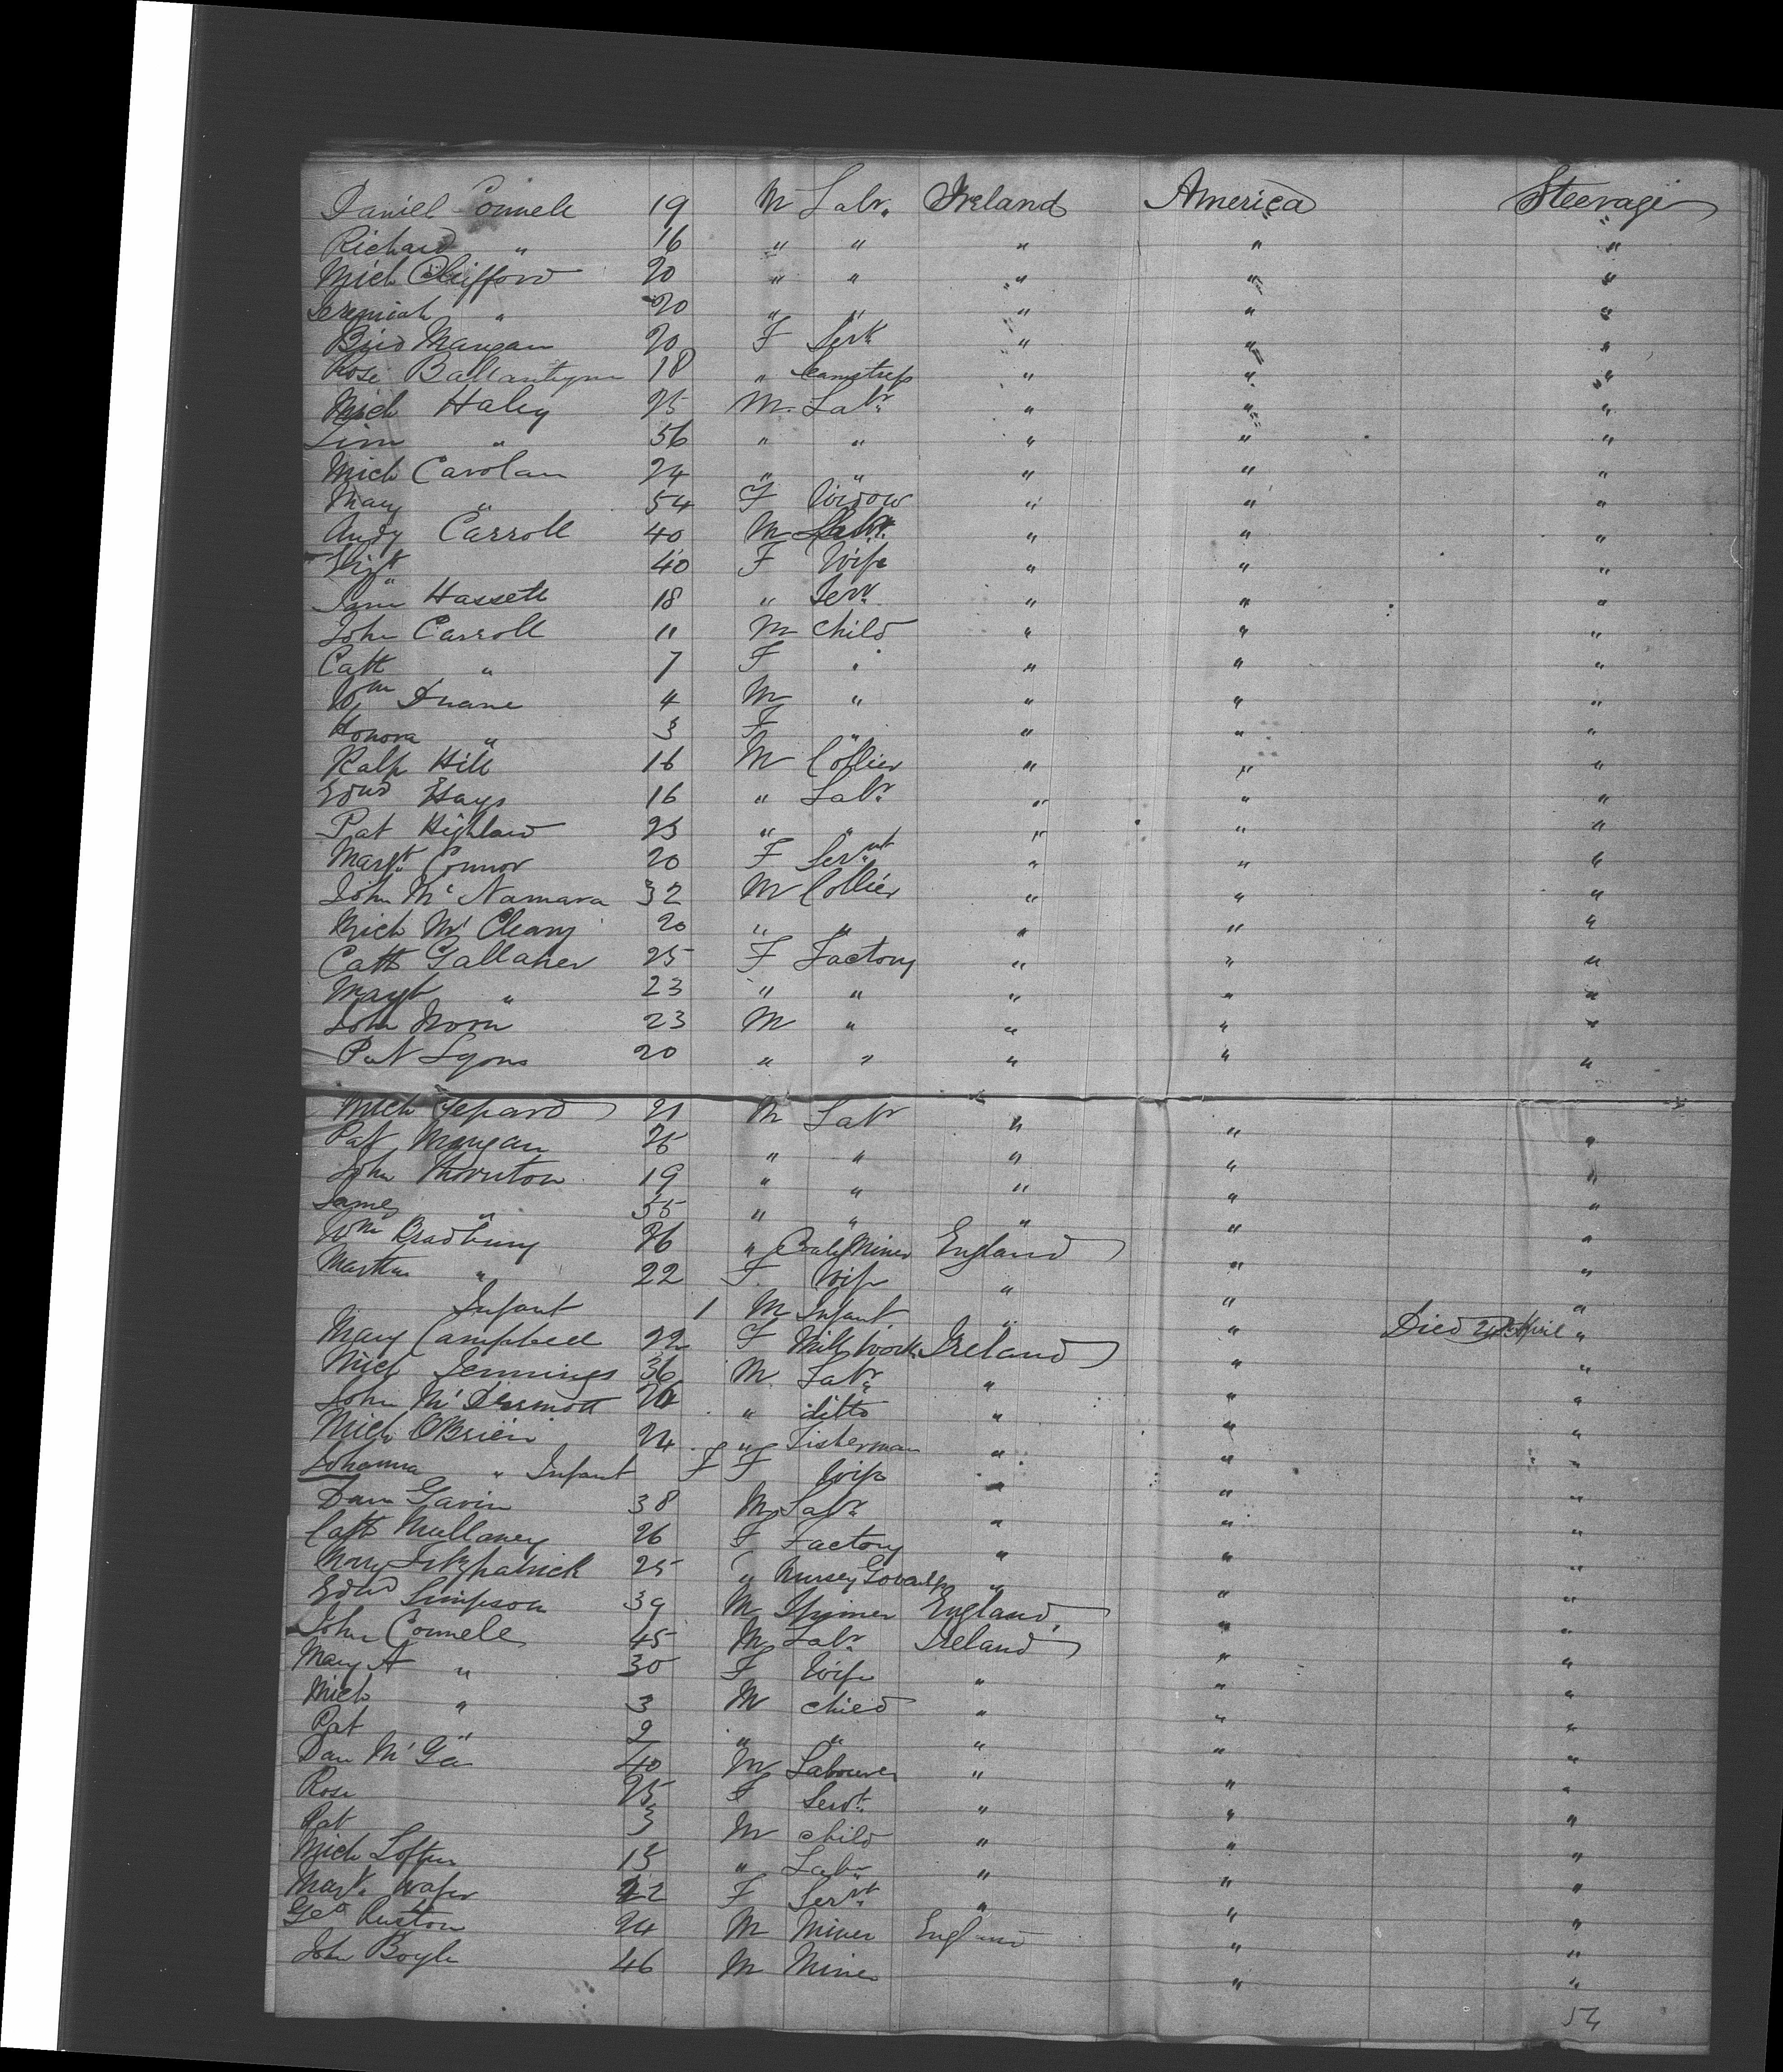 Daniel Connell 19 M Labr. Ireland America Steerage
Richard " 16 " " " " "
Mich Clifford 20 " " " " "
Jeremiah " 20 " " " " "
Brid Mangan 20 F Servt " " "
Rose Ballantyne 18 " Seamstress " " "
Mich Haley 25 M. Labr. " " "
Tim " 56 " " " " "
Mich Carolan 24 " " " " "
Mary " 54 F Widow " " "
Andy Carroll 40 M Labr. " " "
" 40 F Wife " " "
Jane Hassett 18 " Servt " " "
John Carroll 11 M child " " "
Cath " 7 F " " " "
Wm Duane 4 M " " " "
Honora " 3 F " " " "
Ralp Hill 16 M Collier " " "
Edwd Hays 16 " Labr. " " "
Pat Highland 23 " " " " "
Margt. Connor 20 F Servnt " " "
John Mc Namara 32 M Collier " " "
Mich Mc Cleary 20 " " " " "
Cath Gallaher 25 F Factory " " "
Margt " 23 " " " " "
John Noon 23 M " " " "
Pat Lyons 20 " " " " "
Mich Gepard 21 M Labr " " "
Pat Mangan 25 " " " " "
John Thornton 19 " " " " "
James " 55 " " " " "
Wm Bradbury 26 " Coal Miner England " "
Martha " 22 F. Wife " " "
Infant 1 M Infant " " Died April "
Mary Campbell 22 F Mill Work. Ireland " "
Mich Jennings 36 M. Labr. " " "
John Mc Dermott " ditto " " "
Mich OBrien 24 " Fisherman " " "
Johanna " Infant F Wife " " "
Dan Gavin 38 M Labr. " " "
Cath Mullaney 26 F Factory " " "
Mary Fitzpatrick 25 " Nursey Governess " " "
Edwd Simpson 39 M Spinner England " "
John Connell 45 M Labr. Ireland " "
Mary A " 30 F Wife " " "
Mich " 3 M child " " "
Pat " 2 " " " " "
Dan Mc Ga 40 M Labourer " " "
Rose 25 F Servt. " " "
Pat 3 M child " " "
Mich Loftus 15 " Labr " " "
Mart. Wafer 22 F Servt " " "
Geo Ruston 24 M Miner England " "
John Boyle 46 M Miner " "
54